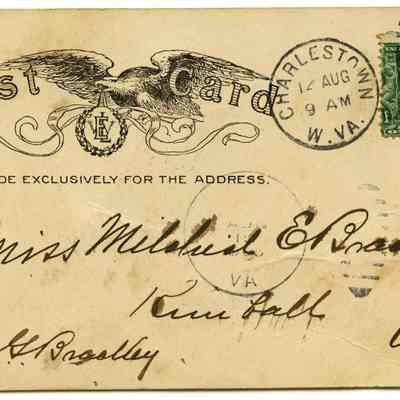 st Card
CHARLESTOWN
12 AUG
9 AM
W. VA.
DE EXCLUSIVELY FOR THE ADDRESS.
VA
Miss Mildred E Bra
Kimball
G Bradley